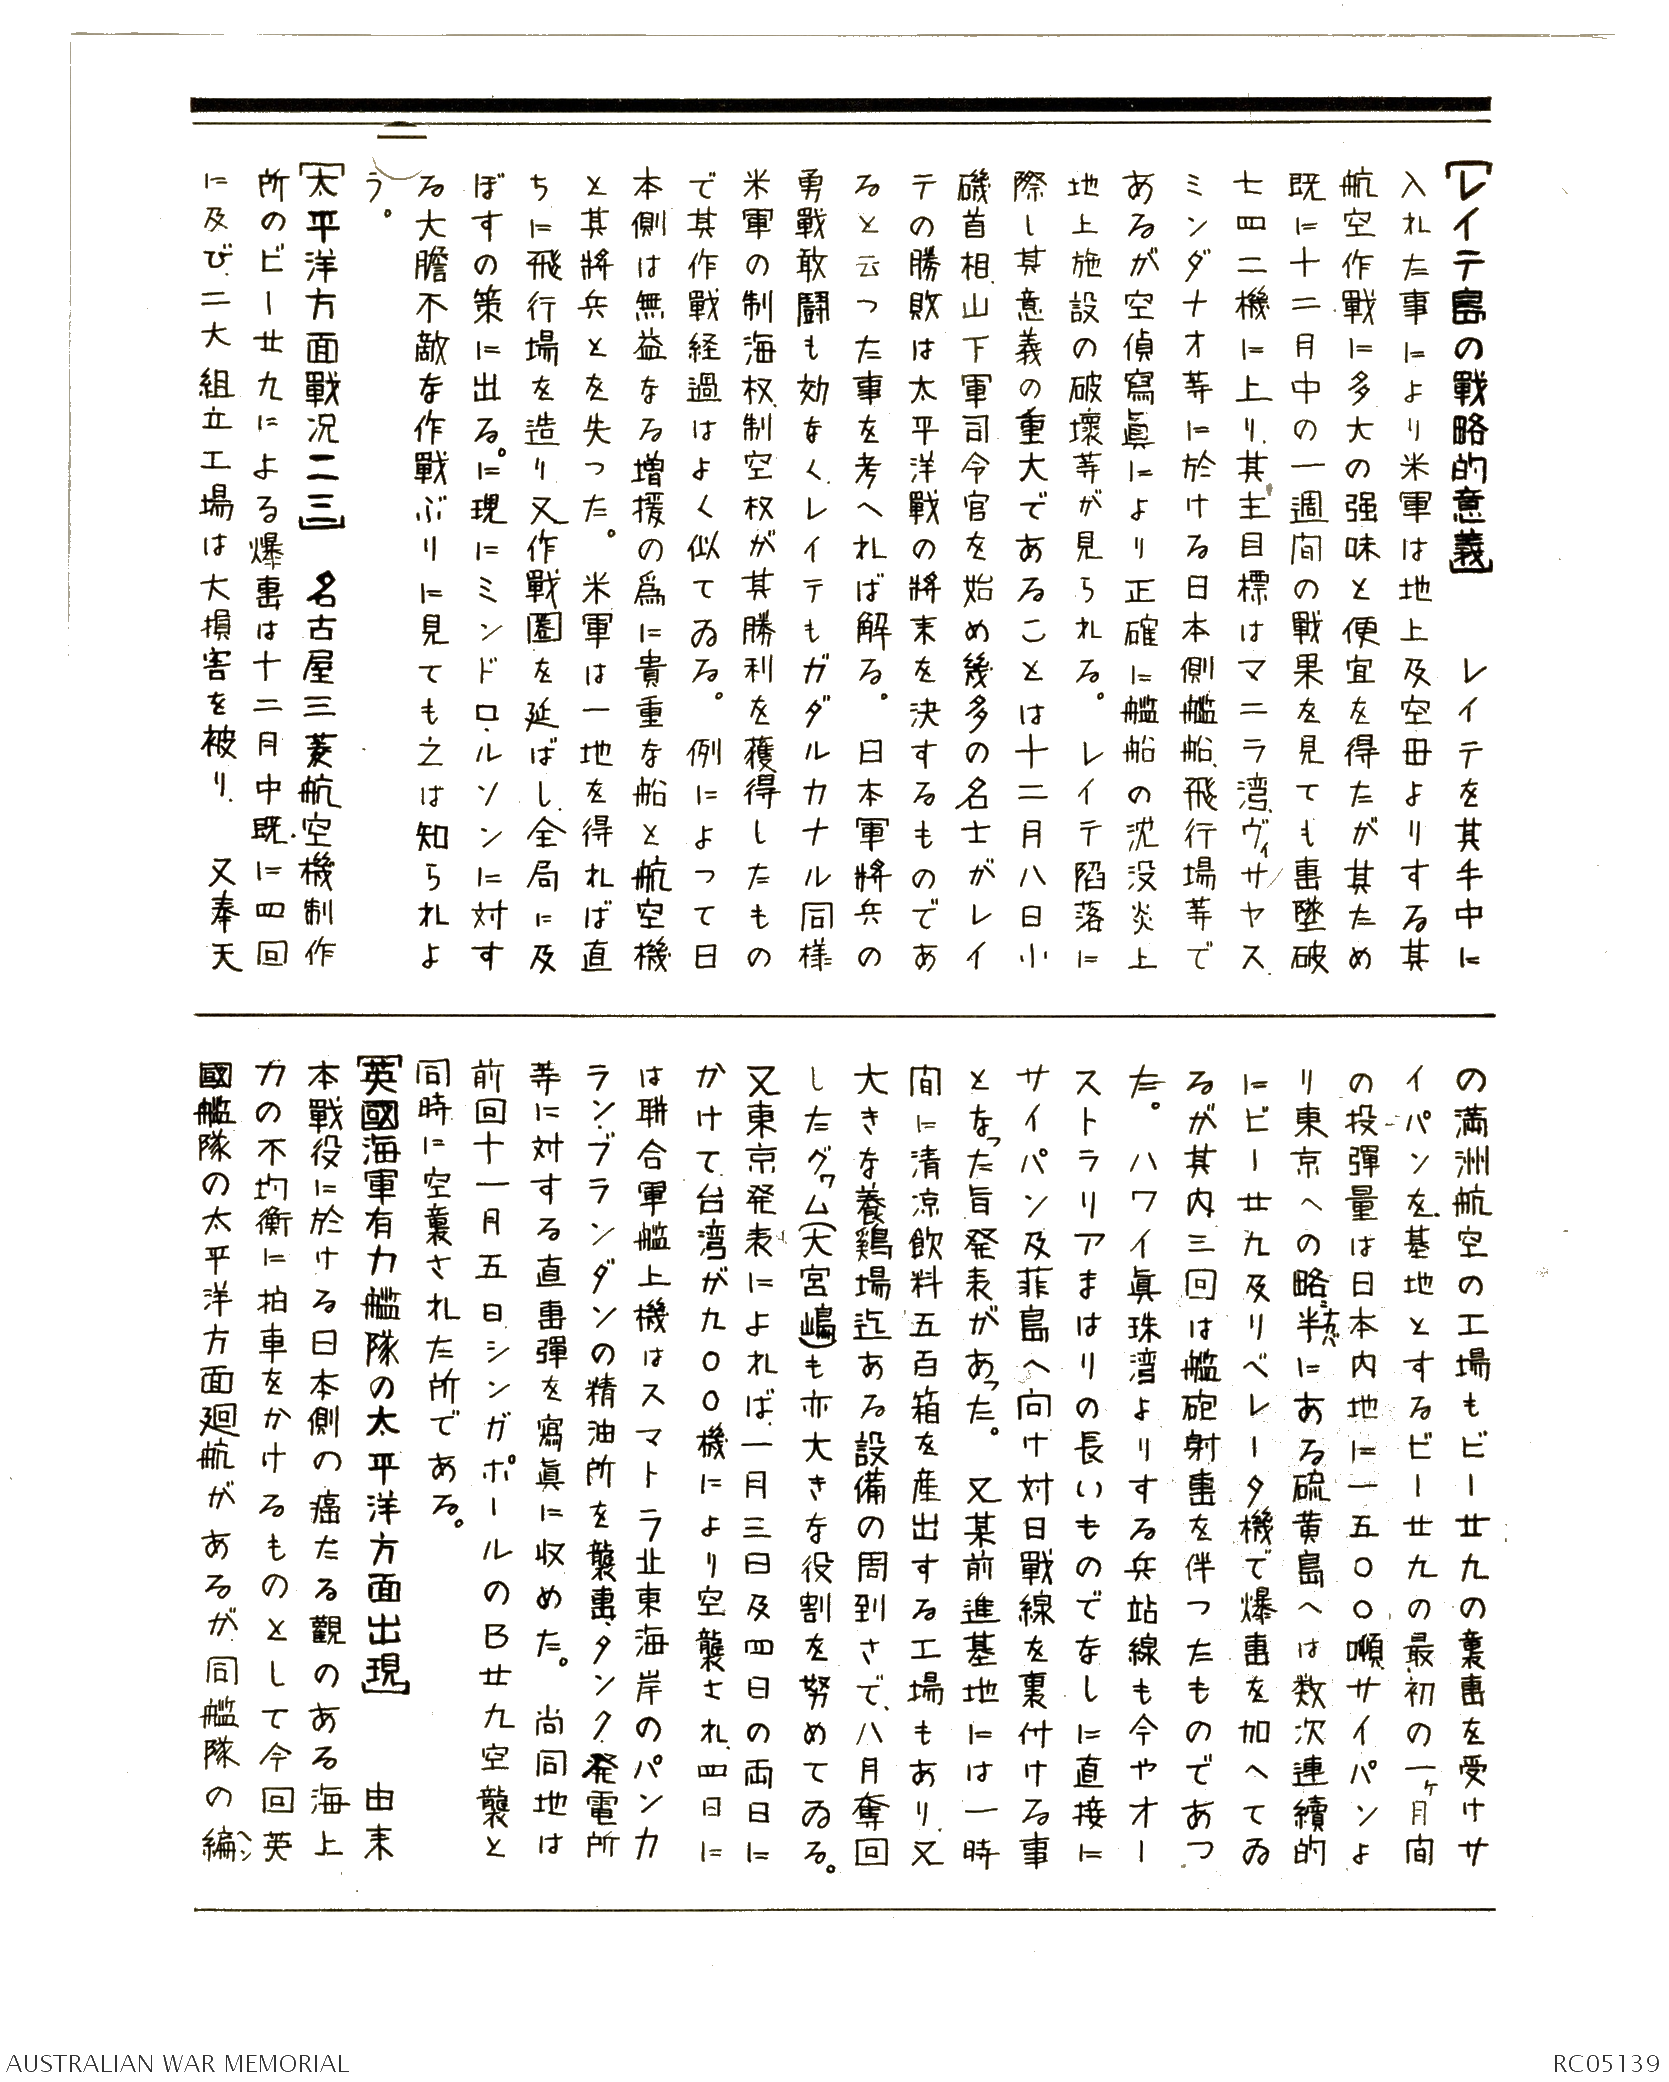 二
[レイテ島の戰略的意義]　レイテを其手中に
入れた事により米軍は地上及空母よりする其
航空作戰に多大の强味と便宜を得たが其ため
既に十二月中の一週間の戰果を見ても擊墜破
七四二機に上り、其主目標はマニラ湾、ヴィサヤス
ミンダナオ等に於ける日本側艦船、飛行場等で
あるが空偵寫眞により正確に艦船の沈没炎上
地上施設の破壞等が見られる。レイテ陷落に
際し其意義の重大であることは十二月八日小
磯首相、山下軍司令官を始め幾多の名士がレイ
テの勝敗は太平洋戰の將来を決するものであ
ると云つた事を考へれば解る。日本軍將兵の
勇戰敢闘も効なく、レイテもガダルカナル同様
米軍の制海权、制空权が其勝利を獲得したもの
で其作戰経過はよく似てゐる。例によつて日
本側は無益なる増援の爲に貴重な船と航空機
と其將兵とを失つた。米軍は一地を得れば直
ちに飛行場を造り又作戰圏を延ばし、全局に及
ぼすの策に出る。に現にミンドロ、ルソンに対す
る大膽不敵な作戰ぶりに見ても之は知られよ
う。
[太平洋方面戰况二三]　名古屋三菱航空機制作
所のビー廿九による爆擊は十二月中既に四回
に及び、二大組立工場は大損害を被り、又奉天
の満洲航空の工場もビー廿九の襲擊を受けサ
イパンを基地とするビー廿九の最初の一ヶ月間
の投彈量は日本内地に一五〇〇噸サイパンよ
り東京への略半ナカバにある硫黄島へは数次連續的
にビー廿九及リベレータ機で爆擊を加へてゐ
るが其内三回は艦砲射擊を伴つたものであつ
た。ハワイ眞珠湾よりする兵站線も今やオー
ストラリアまはりの長いものでなしに直接に
サイパン及菲島へ向け対日戰線を裏付ける事
となつた旨発表があつた。又某前進基地には一時
間に清涼飲料五百箱を産出する工場もあり、又
大きな養鶏場迄ある設備の周到さで、八月奪回
したグヮム(大宮嶋)も亦大きな役割を努めてゐる。
又東京発表によれば、一月三日及四日の両日に
かけて、台湾が九〇〇機により空襲され、四日に
は聯合軍艦上機はスマトラ北東海岸のパンカ
ラン・ブランダンの精油所を襲擊、タンク、発電所
等に対する直擊彈を寫眞に収めた。尚同地は
前回十一月五日シンガポールのB廿九空襲と
同時に空襲された所である。
[英國海軍有力艦隊の太平洋方面出現]　由来
本戰役に於ける日本側の癌たる觀のある海上
力の不均衡に拍車をかけるものとして今回英
國艦隊の太平洋方面廻航があるが、同艦隊の編ヘン
AUSTRALIAN WAR MEMORIAL
RC05139